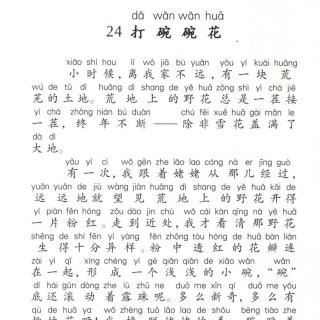 dǎ wǎn wǎn huā
24 打 碗 碗 花
xiǎo shí hou lí wǒ jiā bù yuǎn yǒu yí kuài huāng
小时候，离我家不远，有一块荒
wú de tǔ dì huāng dì shang de yě huā zǒng shì yì chá jiē
芜的土地。荒地上的野花总是一茬接
yì chá zhōng nián bú duàn chú fēi xuě huā gài mǎn le
一茬，终年不断——除非雪花盖满了
dà dì
大地。
yǒu yí cì wǒ gēn zhe lǎo lao cóng nà er jīng guò
有一次，我跟着姥姥从那儿经过，
yuǎn yuǎn de jiù wàng jiàn huāng dì shang de yě huā kāi de
远远地就望见荒地上的野花开得
yí piàn fěn hóng zǒu dào jìn chù wǒ cái kàn qīng nà yě huā
一片粉红。走到近处，我才看清那野花
shēng de shí fēn yì yàng fěn zhōng tòu hóng de huā bàn lián
生得十分异样。粉中透红的花瓣连
zài yì qǐ xíng chéng yí gè qiǎn qiǎn de xiǎo wǎn wǎn
在一起，形成一个浅浅的小碗，“碗”
dǐ hái gǔn dòng zhe lù zhū ne duō me xīn qí duō me yǒu
底还滚动着露珠呢。多么新奇，多么有
qù de huā ya wǒ